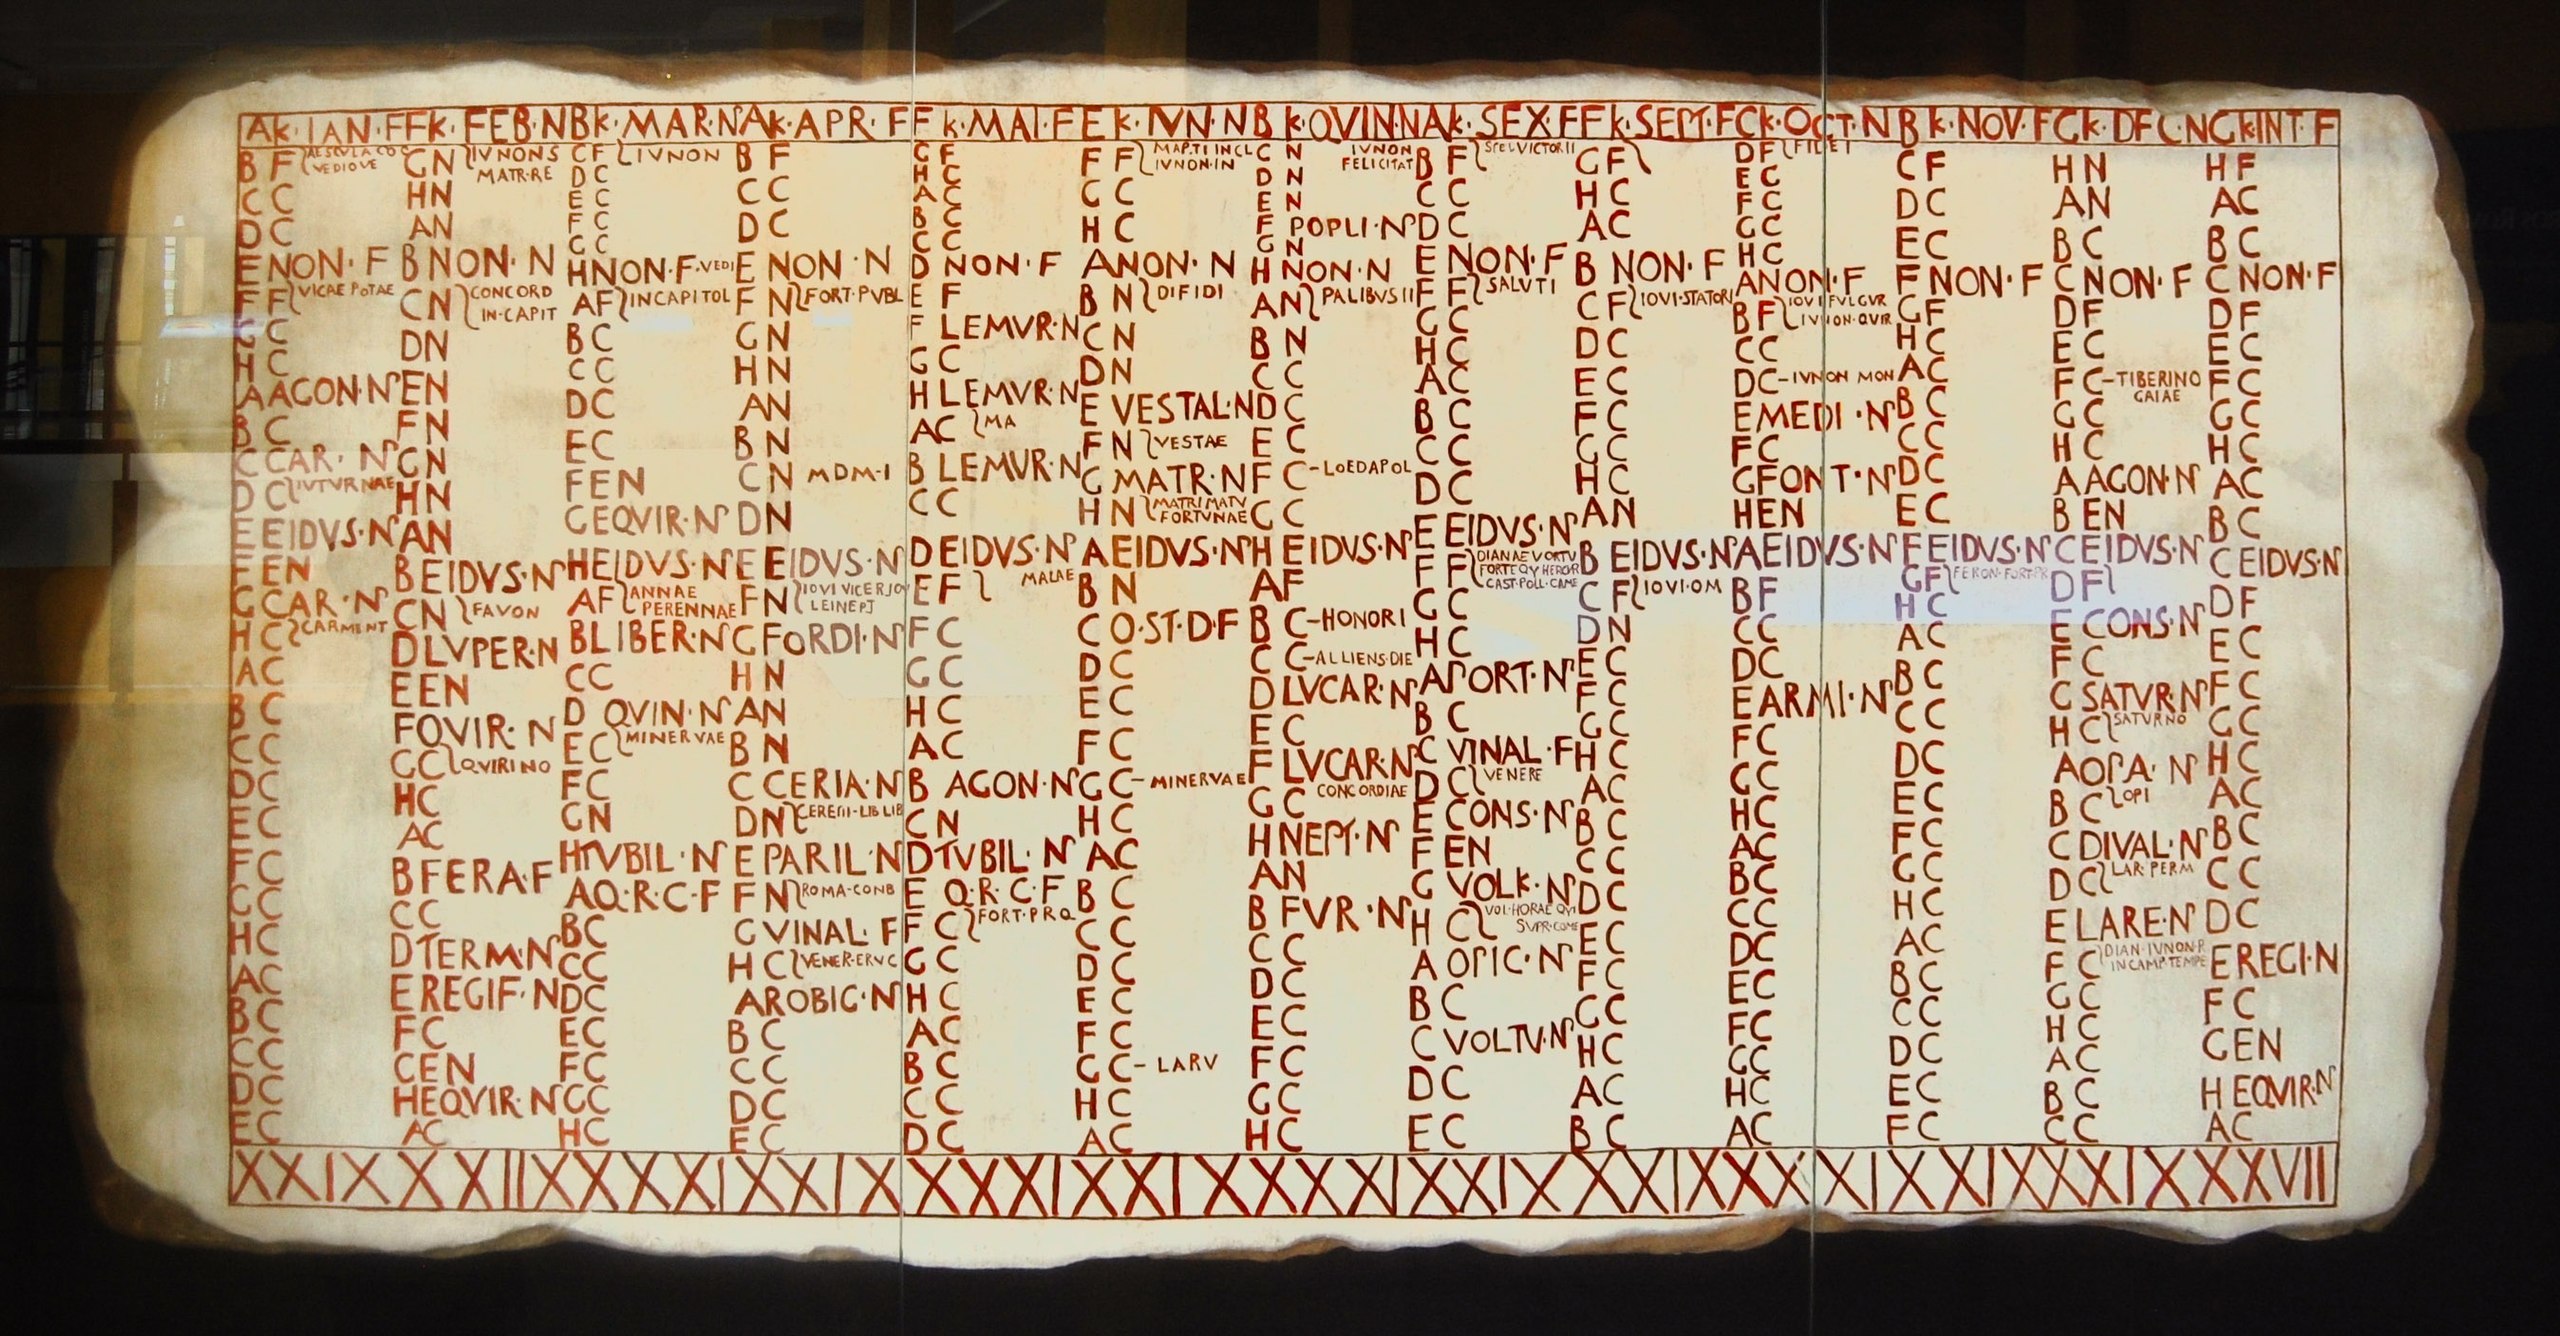 AK·IAN·F FK·FEB·N BK·MAR·N AK·APR·F FK·MAI·F EK·IVN·N BK·QVIN·N AK·SEX·F FK·SEPT·F CK·OCT·N BK·NOV·F GK·DEC·N GK·INT·F
B F
VEDIOVE
C C
D C
E NON·F
F F VICAE POTAE
G C
H C
A AGON·N
B C
C CAR·N
D C IVTVRNAE
E EIDVS·N
F EN
G CAR·N
H C CARMENT
A C
B C
C C
D C
E C
F C
G C
H C
A C
B C
C C
D C
E C
G N IVNONS
MATR·RE
H N
A N
B NON·N
C N CONCORD
IN·CAPIT
D N
E N
F N
G N
H N
A N
B EIDVS·N
C N FAVON
D LVPER·N
E EN
F QVIR·N
G C QVIRINO
H C
A C
B FERA·F
C C
D TERM·N
E REGIF·N
F C
G EN
H EQVIR·N
A C
C F IVNON
D C
E C
F C
G C
H NON·F·VEDI
A F IN CAPITOL
B C
C C
D C
E C
F EN
G EQVIR·N
H EIDVS·N
A F ANNAE
PERENNAE
B LIBER·N
C C
D QVIN·N
E C MINERVAE
F C
G N
H TVBIL·N
A Q·R·C·F
B C
C C
D C
E C
F C
G C
H C
B F
C C
D C
E NON·N
F N FORT·PVBL
G N
H N
A N
B N
C N MDM·I
D N
E EIDVS·N
F N IOVI VICERIOV
LEINEPI
G FORDI·N
H N
A N
B N
C CERIA·N
D N CERERI·LIB LIB
E PARIL·N
F N ROMA·CONB
G VINAL·F
H C VENER·ERVC
A ROBIG·N
B C
C C
D C
E C
G F
H C
A C
B C
C C
D NON·F
E F
F LEMVR·N
G C
H LEMVR·N
A C MA
B LEMVR·N
C C
D EIDVS·N
E F MAIAE
F C
G C
H C
A C
B AGON·N
C N
D TVBIL·N
E Q·R·C·F
F C FORT·PR·Q
G C
H C
A C
B C
C C
D C
F F MARTI INCL
IVNON·IN
G C
H C
A NON·N
B N DIFIDI
C N
D N
E VESTAL·N
F N VESTAE
G MATR·N
H N MATRI MATV
FORTVNAE
A EIDVS·N
B N
C Q·ST·D·F
D C
E C
F C
G C-MINERVAE
H C
A C
B C
C C
D C
E C
F C
G C-LARV
H C
A C
C N
D N
E N
F POPLI·N
G N
H NON·N IVNON
FELICITAT
A N PALIBVS II
B N
C C
D C
E C
F C-LOEDAPOL
G C
H EIDVS·N
A F
B C-HONORI
C C-ALLIENS·DIE
D LVCAR·N
E C
F LVCAR·N
G C CONCORDIAE
H NEPT·N
A N
B FVR·N
C C
D C
E C
F C
G C
H C
B F SPEI VICTORII
C C
D C
E NON·F
F F SALVTI
G C
H C
A C
B C
C C
D C
E EIDVS·N
F F DIANAE VORTV
FORTEQV HERCR
CAST·POLL·CAME
G C
H C
A PORT·N
B C
C VINAL·F
D C VENERE
E CONS·N
F EN
G VOLK·N
H C VOL·HORAE QVI
SVPR·COME
A OPIC·N
B C
C VOLTV·N
D C
E C
G F
H C
A C
B NON·F
C F IOVI·STATORI
D C
E C
F C
G C
H C
A N
B EIDVS·N
C F IOVI·OM
D N
E C
F C
G C
H C
A C
B C
C C
D C
E C
F C
G C
H C
A C
B C
D F FIDEI
E C
F C
G C
H C
A NON·F
B F IOVI FVLGVR
IVNON·QVIR
C C
D C-IVNON MON
E MEDI·N
F C
G FONT·N
H EN
A EIDVS·N
B F
C C
D C
E ARMI·N
F C
G C
H C
A C
B C
C C
D C
E C
F C
G C
H C
A C
C F
D C
E C
F NON·F
G F
H C
A C
B C
C C
D C
E C
F EIDVS·N
G F FERON·FORT·PR
H C
A C
B C
C C
D C
E C
F C
G C
H C
A C
B C
C C
D C
E C
F C
H N
A N
B C
C NON·F
D F
E C
F C-TIBERINO
GAIAE
G C
H C
A AGON·N
B EN
C EIDVS·N
D F
E CONS·N
F C
G SATVR·N
H C SATVRNO
A OPA·N
B C OPI
C DIVAL·N
D C LAR·PERM
E LARE·N
F C DIAN·IVNON·R
IN CAMP·TEMPE
G C
H C
A C
B C
C C
H F
A C
B C
C NON·F
D F
E C
F C
G C
H C
A C
B C
C EIDVS·N
D F
E C
F C
G C
H C
A C
B C
C C
D C
E REGI·N
F C
G EN
H EQVIR·N
A C
XXIX XXIIX XXXI XXIX XXXI XXIX XXXI XXIX XXIX XXXI XXIX XXIX XXVII